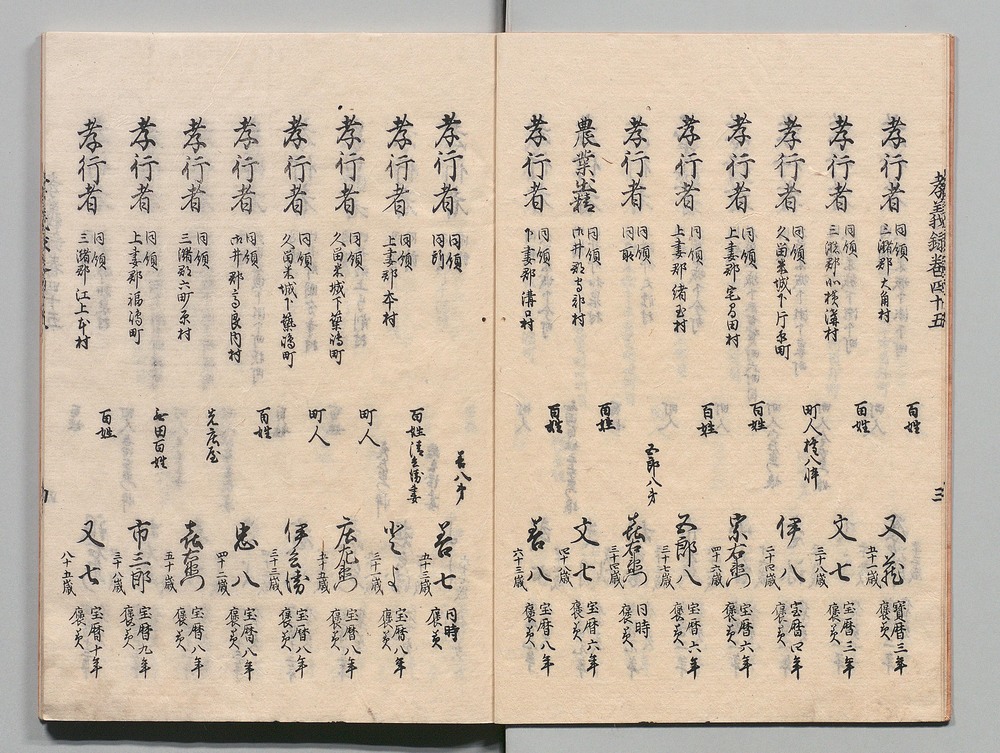 孝義録巻四十五
三
孝行者 同領 三潴郡大角村 百姓 又蔵 五十一歳 寶暦三年 褒美
孝行者 同領 三潴郡北横溝村 百姓 文七 三十八歳 宝暦三年 褒美
孝行者 同領 久留米城下片原町 町人権八倅 伊八 二十四歳 宝暦四年 褒美
孝行者 同領 上妻郡宅間田村 百姓 宗右衛門 四十六歳 宝暦六年 褒美
孝行者 同領 上妻郡緒玉村 百姓 五郎八 三十七歳 宝暦六年 褒美
孝行者 同領 同所 五郎八弟 喜右衛門 三十四歳 同時 褒美
農業出精 同領 御井郡高郡村 百姓 文七 四十八歳 宝暦六年 褒美
孝行者 同領 下妻郡溝口村 百姓 善八 六十三歳 宝暦八年 褒美
孝行者 同領 同所 善八弟 善七 五十三歳 同時 褒美
孝行者 同領 上妻郡本村 百姓清兵衛妻 とよ 三十一歳 宝暦八年 褒美
孝行者 同領 久留米城下築嶋町 町人 庄左衛門 五十五歳 宝暦八年 褒美
孝行者 同領 久留米城下築嶋町 町人 伊兵衛 三十三歳 宝暦八年 褒美
孝行者 同領 御井郡高良内村 百姓 忠八 四十一歳 宝暦八年 褒美
孝行者 同領 三潴郡六町原村 先庄屋 喜右衛門 五十歳 宝暦八年 褒美
孝行者 同領 上妻郡福嶋町 無田百姓 市三郎 三十八歳 宝暦九年 褒美
孝行者 同領 三潴郡江上本村 百姓 又七 八十五歳 宝暦十年 褒美